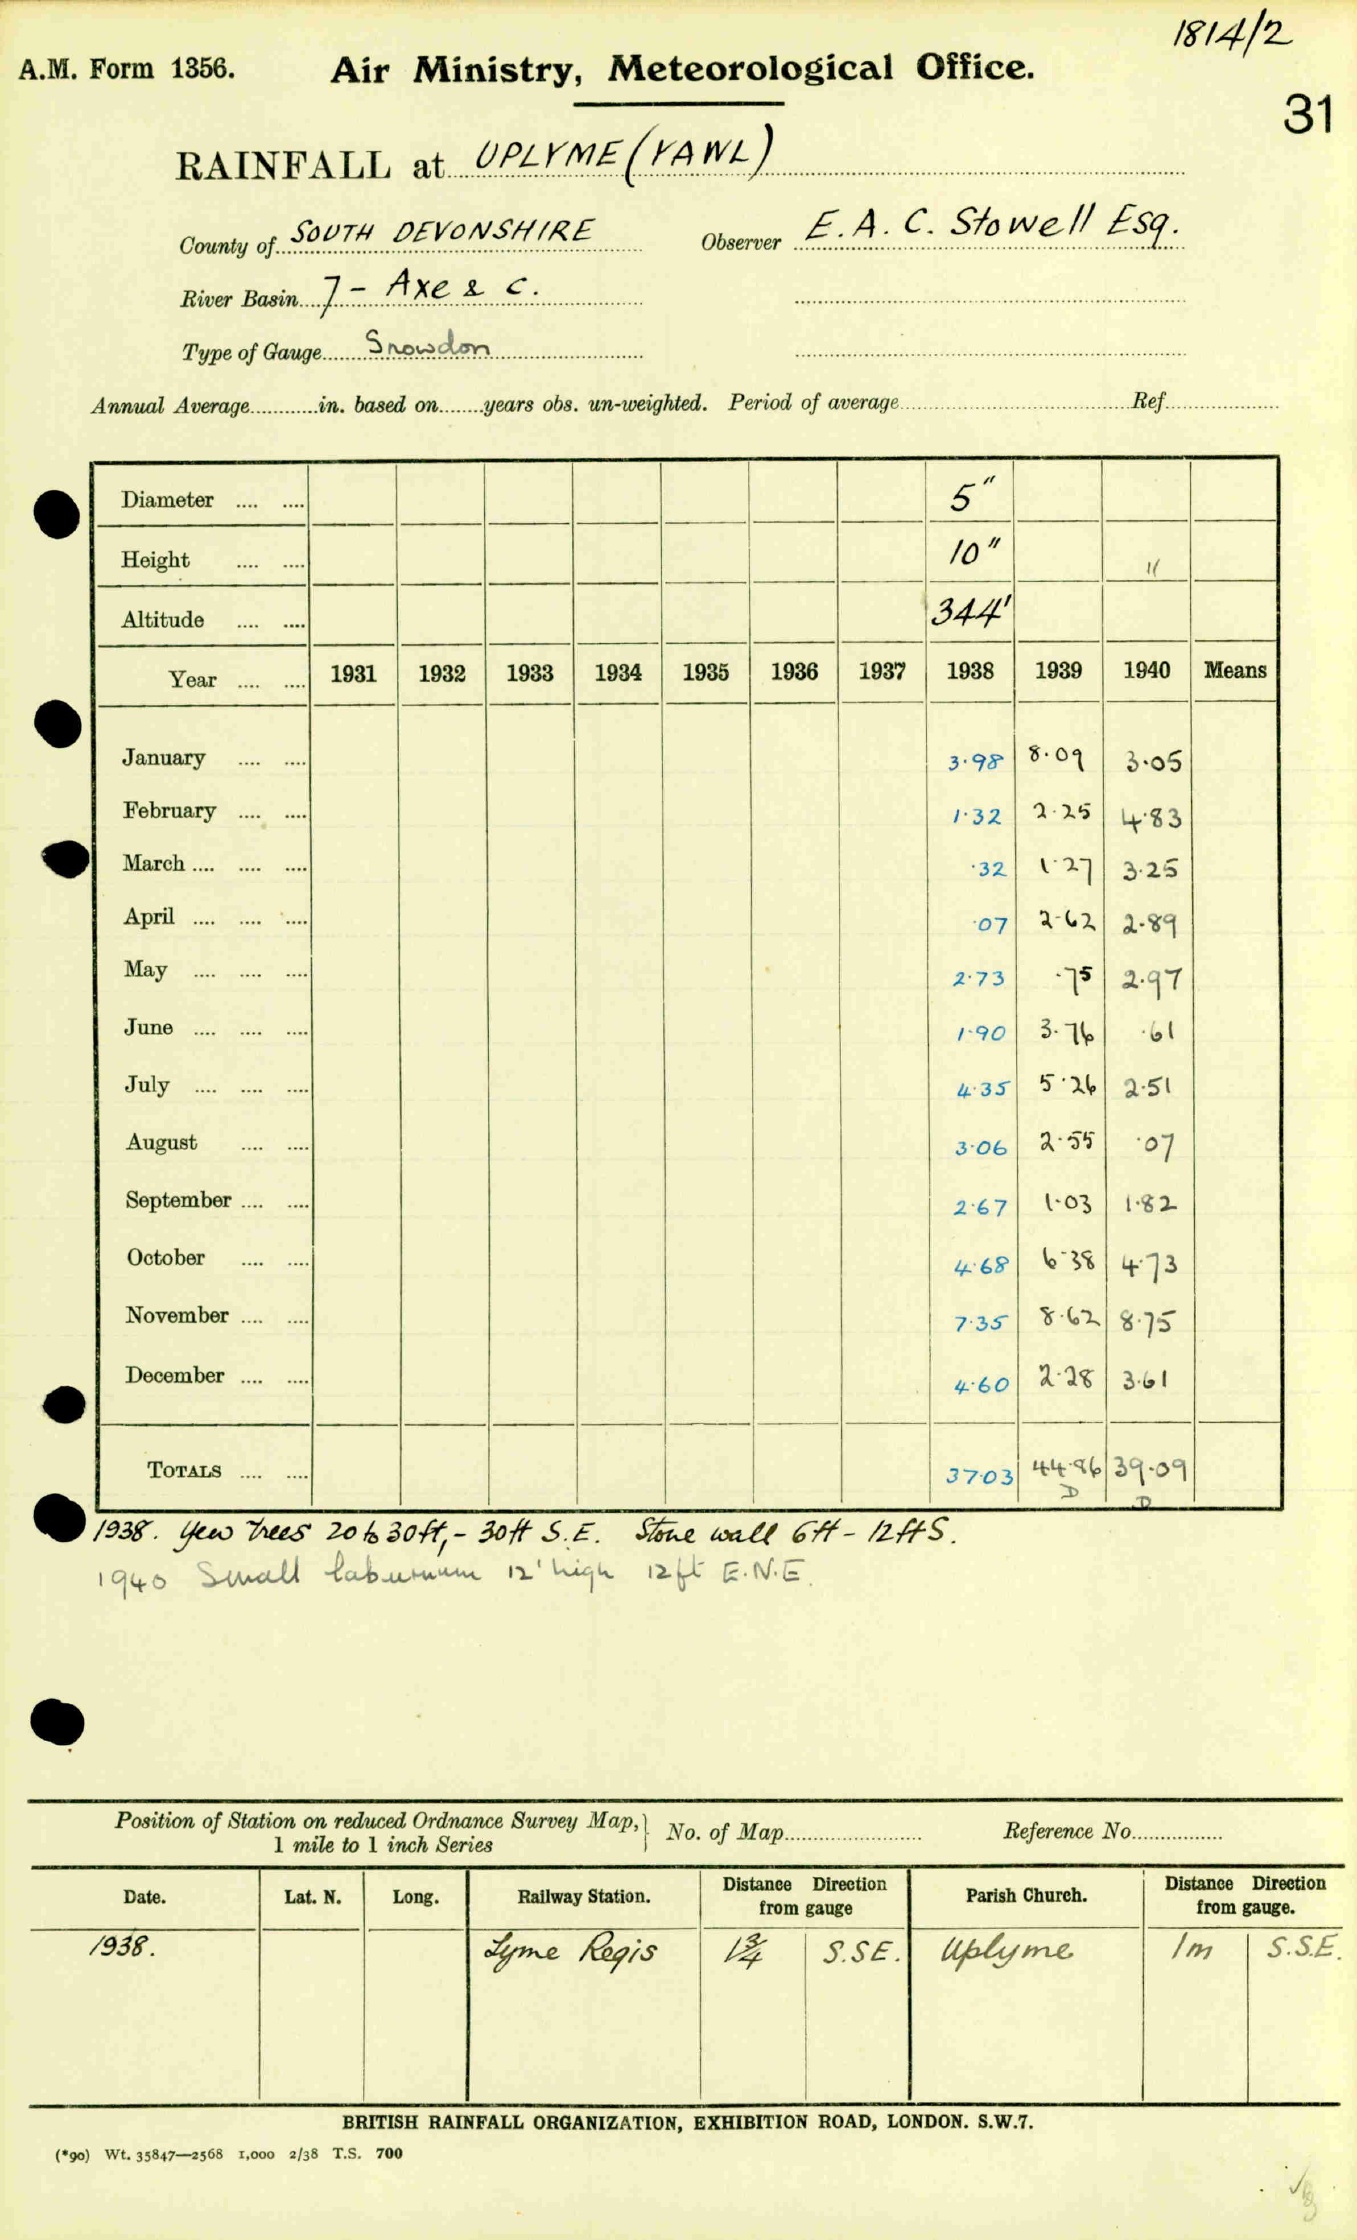 1814/2
A.M. Form 1356. Air Ministry, Meteorological Office.
31
RAINFALL at UPLYME (YAWL)
County of SOUTH DEVONSHIRE Observer E. A. C. Stowell Esq.
River Basin 7 - Axe & c.
Type of Gauge Snowdon
Annual Average in. based on years obs. un-weighted. Period of average Ref
Diameter 5"
Height 10" 11
Altitude 344'
Year 1931 1932 1933 1934 1935 1936 1937 1938 1939 1940 Means
January 3.98 8.09 3.05
February 1.32 2.25 4.83
March .32 1.27 3.25
April .07 2.62 2.89
May 2.73 .75 2.97
June 1.90 3.76 .61
July 4.35 5.26 2.51
August 3.06 2.55 .07
September 2.67 1.03 1.82
October 4.68 6.38 4.73
November 7.35 8.62 8.75
December 4.60 2.28 3.61
TOTALS 37.03 44.86 39.09
D D
1938. Yew trees 20 to 30ft, - 30ft S.E. Stone wall 6ft - 12ft S.
1940 Small laburnum 12' high 12ft E.N.E.
Position of Station on reduced Ordnance Survey Map, No. of Map Reference No
1 mile to 1 inch Series
Date. Lat. N. Long. Railway Station. Distance Direction from gauge Parish Church. Distance Direction from gauge.
1938. Lyme Regis 1¾ S.SE. Uplyme 1m S.S.E.
BRITISH RAINFALL ORGANIZATION, EXHIBITION ROAD, LONDON. S.W.7.
(*90) Wt. 35847—2568 1,000 2/38 T.S. 700